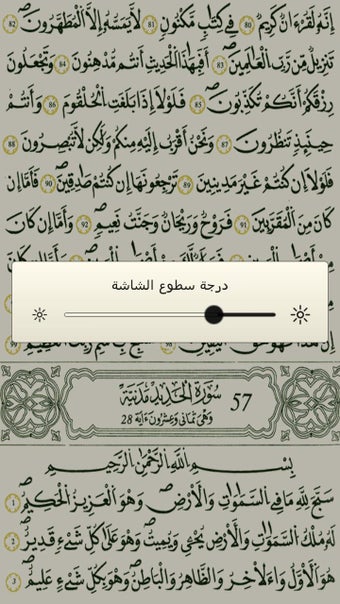 إِنَّهُ لَقُرْءَانٌ كَرِيمٌ 80 فِي كِتَٰبٍ مَّكْنُونٍ 81 لَّا يَمَسُّهُ إِلَّا ٱلْمُطَهَّرُونَ 82
تَنزِيلٌ مِّن رَّبِّ ٱلْعَٰلَمِينَ 83 أَفَبِهَٰذَا ٱلْحَدِيثِ أَنتُم مُّدْهِنُونَ 84 وَتَجْعَلُونَ
رِزْقَكُمْ أَنَّكُمْ تُكَذِّبُونَ 85 فَلَوْلَا إِذَا بَلَغَتِ ٱلْحُلْقُومَ 86 وَأَنتُمْ
حِينَئِذٍ تَنظُرُونَ 87 وَنَحْنُ أَقْرَبُ إِلَيْهِ مِنكُمْ وَلَٰكِن لَّا تُبْصِرُونَ 88
فَلَوْلَا إِن كُنتُمْ غَيْرَ مَدِينِينَ 89 تَرْجِعُونَهَا إِن كُنتُمْ صَٰدِقِينَ 90 فَأَمَّا إِن
كَانَ مِنَ ٱلْمُقَرَّبِينَ 91 فَرَوْحٌ وَرَيْحَانٌ وَجَنَّتُ نَعِيمٍ 92 وَأَمَّا إِن كَانَ
درجة سطوع الشاشة
57 سُورَةُ ٱلْحَدِيدِ مَدَنِيَّة
وَهْيَ ثَمَانِي وَعِشْرُونَ ءَايَة 28
بِسْمِ ٱللَّهِ ٱلرَّحْمَٰنِ ٱلرَّحِيمِ
سَبَّحَ لِلَّهِ مَا فِي ٱلسَّمَٰوَٰتِ وَٱلْأَرْضِ وَهُوَ ٱلْعَزِيزُ ٱلْحَكِيمُ 1
لَهُ مُلْكُ ٱلسَّمَٰوَٰتِ وَٱلْأَرْضِ يُحْيِي وَيُمِيتُ وَهُوَ عَلَىٰ كُلِّ شَيْءٍ قَدِيرٌ 2
هُوَ ٱلْأَوَّلُ وَٱلْأَخِرُ وَٱلظَّٰهِرُ وَٱلْبَاطِنُ وَهُوَ بِكُلِّ شَيْءٍ عَلِيمٌ 3